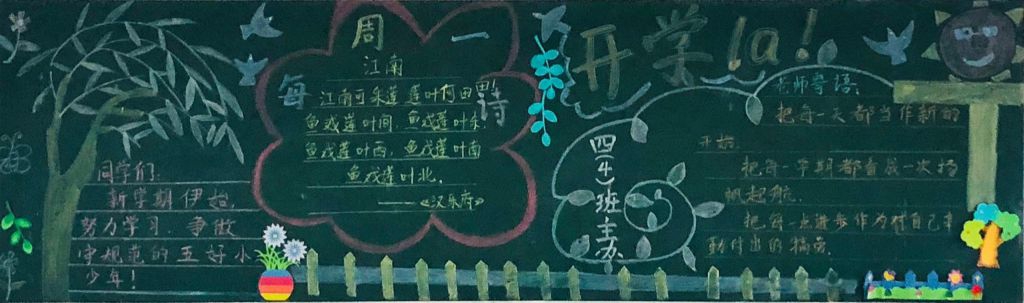 同学们:
新学期伊始,
努力学习.争做
守规范的五好小
少年!
每周一诗
江南
江南可采莲 莲叶何田田
鱼戏莲叶间.鱼戏莲叶东.
鱼戏莲叶西.鱼戏莲叶南
鱼戏莲叶北.
——《汉乐府》
开学la!
四(4)班主办
老师寄语:
把每一天都当作新的
开始.
把每一学期都看成一次扬
帆起航.
把每一点进步作为对自己辛
勤付出的犒劳.